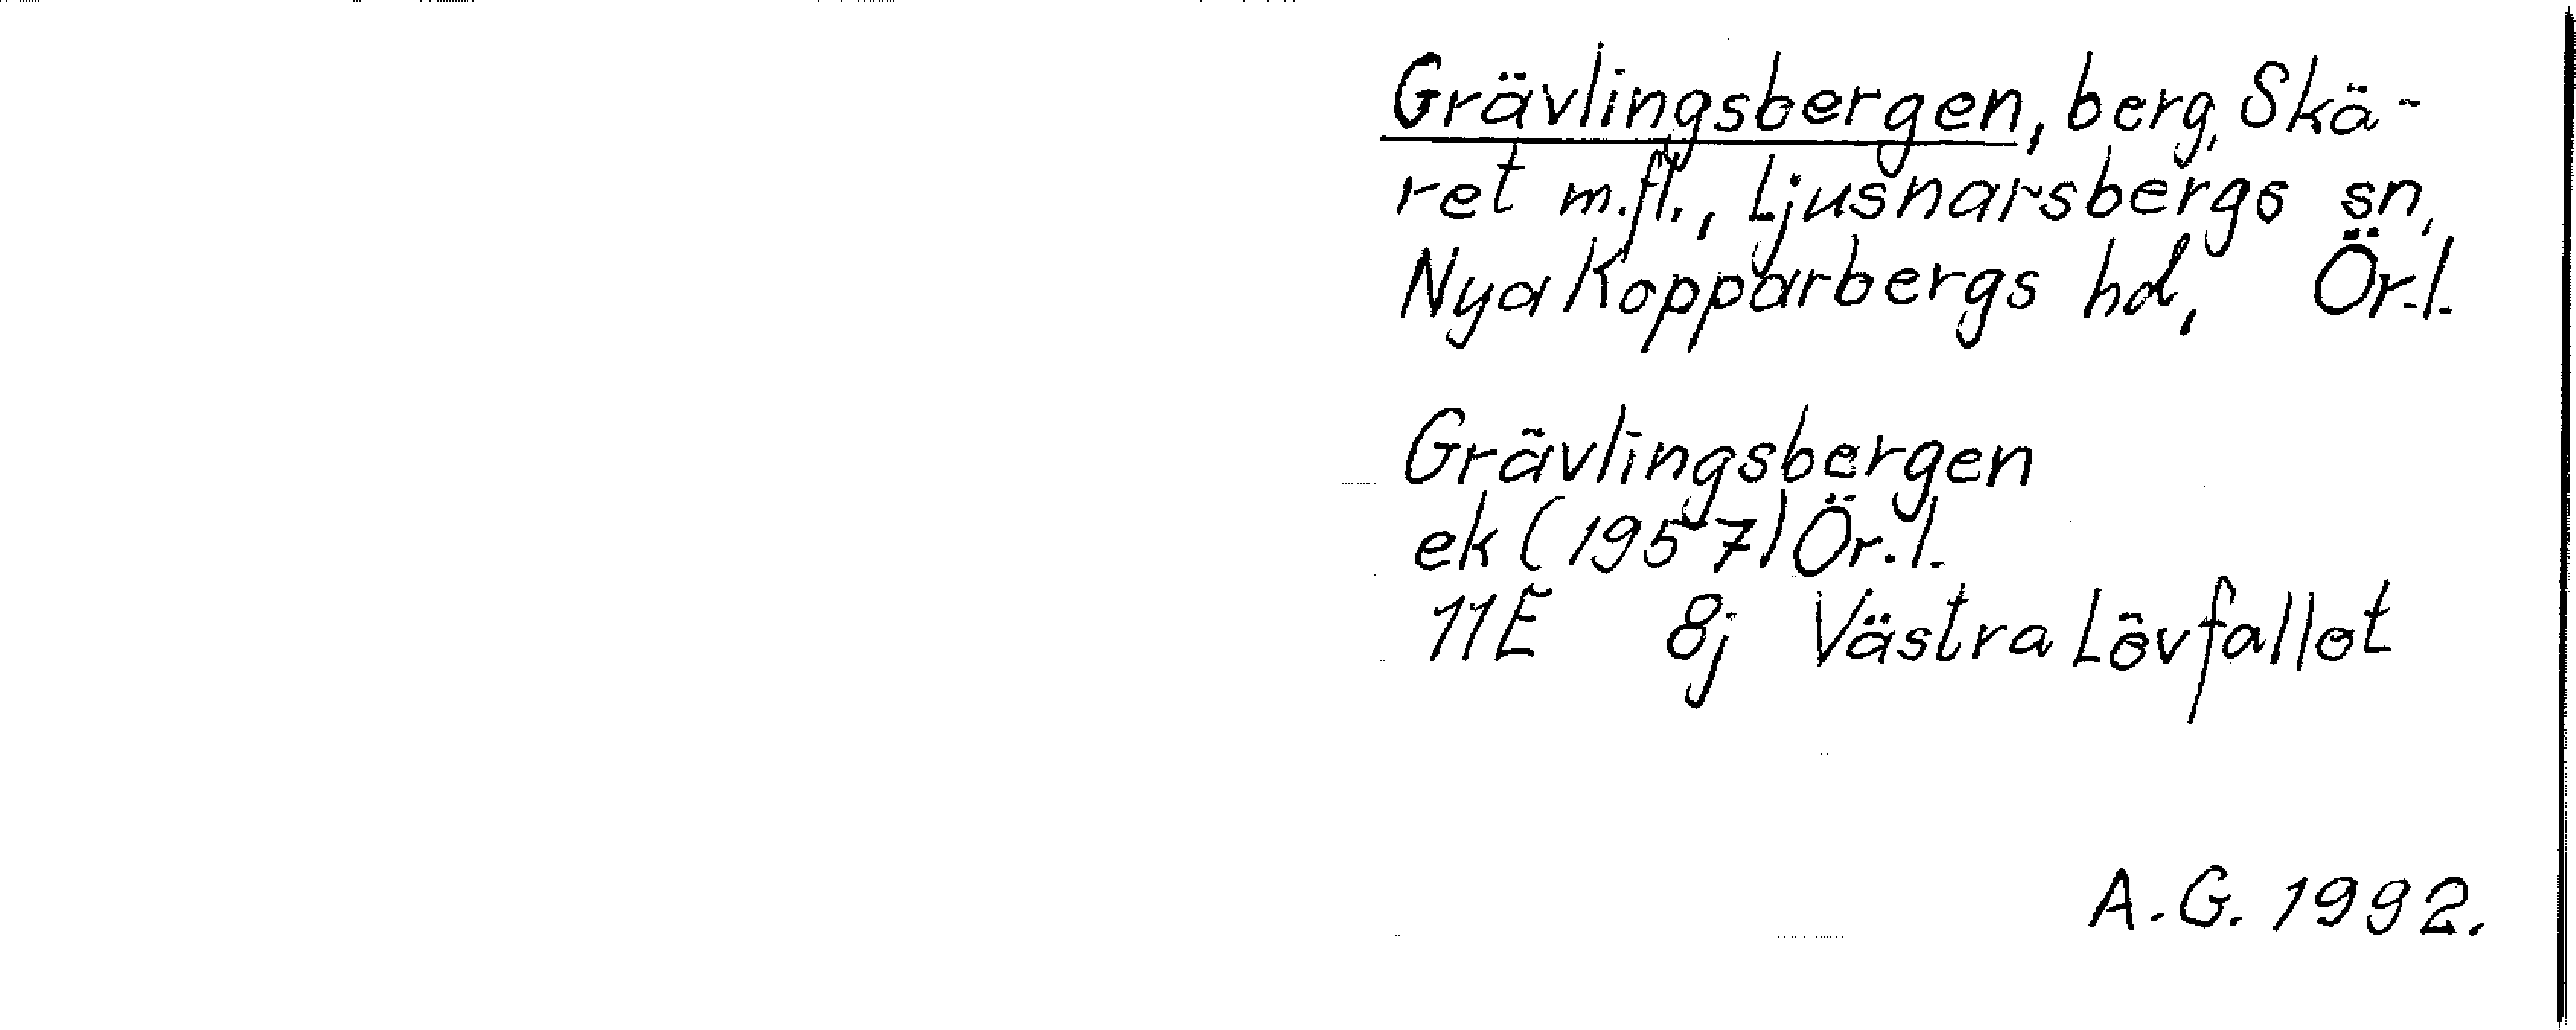 Grävlingsbergen, berg, Skä-
ret m.fl., Ljusnarsbergs sn,
Nya Kopparbergs hd, Ör.l.
Grävlingsbergen
ek (1957) Ör.l.
11E 8j Västra Lövfallet
A.G. 1992.